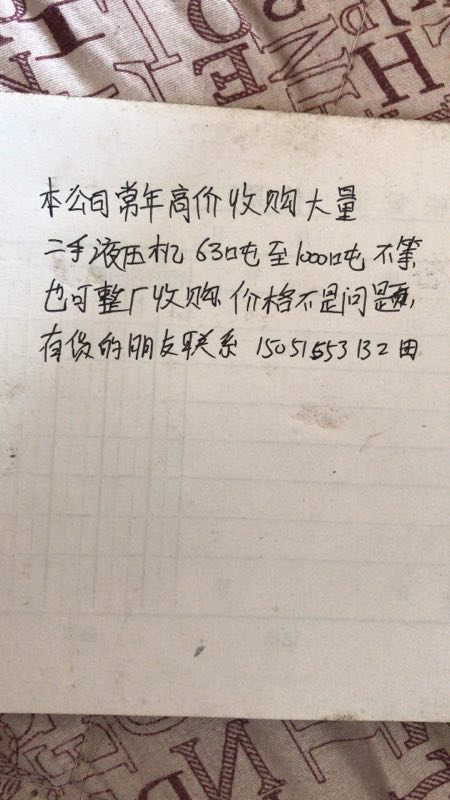 本公司常年高价收购大量
二手液压机 63吨至1000吨不等
也可整厂收购 价格不是问题,
有货的朋友联系 15051553132田